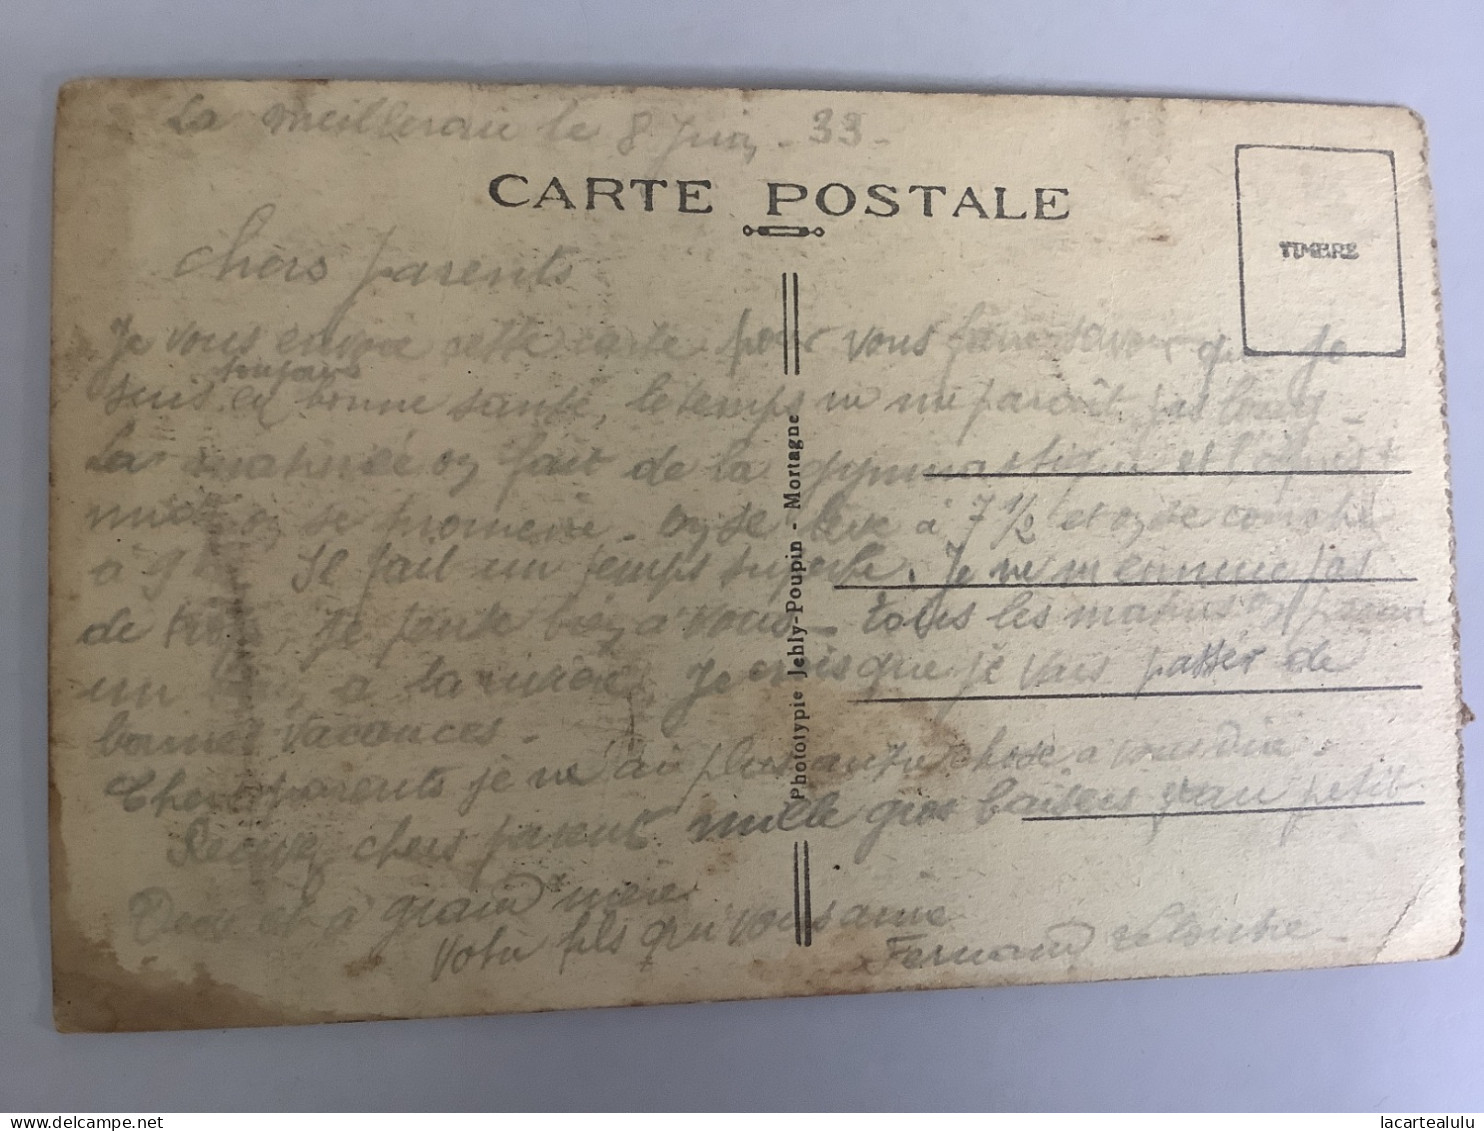 La meilleraie le 8 Juin - 33 -
CARTE POSTALE
TIMBRE
chers parents
Je vous envoie cette carte pour vous faire savoir que je
toujours
suis en bonne santé, le temps ne me parait pas long -
La matinée on fait de la gymnastique et l'après
midi on se promene - on se leve à 7 1/2 et on se couche
à 9 h. Il fait un temps superbe. Je ne m'ennuie pas
de trop, je pense bien à vous - tous les matins on prend
un bain à la rivière, Je crois que je vais passer de
bonnes vacances -
Chers parents je ne ai plus autre chose a vous dire.
Recevez chers parents mille gros baisers qu'au petit
et à grand mère
votre fils qui vous aime
Fernand
Phototypie Jehly-Poupin - Mortagne
lacartealulu